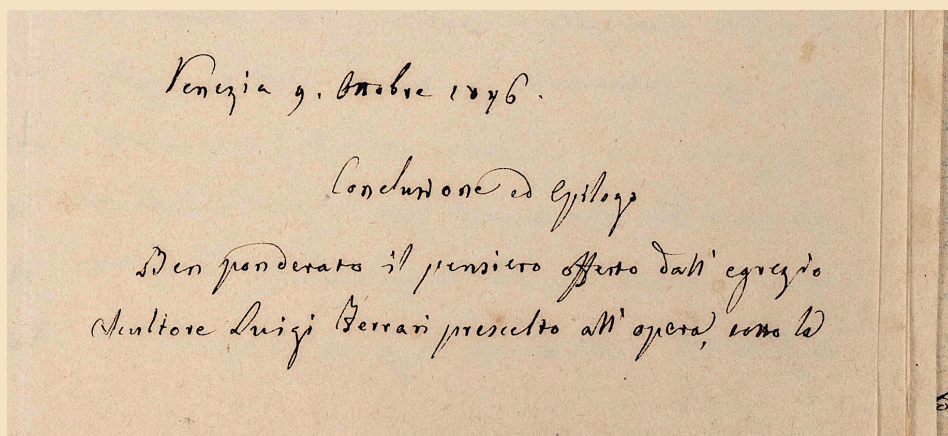 Venezia 9. Ottobre 1846.
Conclusione ed Epilogo
Ben ponderato il pensiero offerto dall' egregio
Scultore Luigi Ferrari prescelto all' opera, sotto la